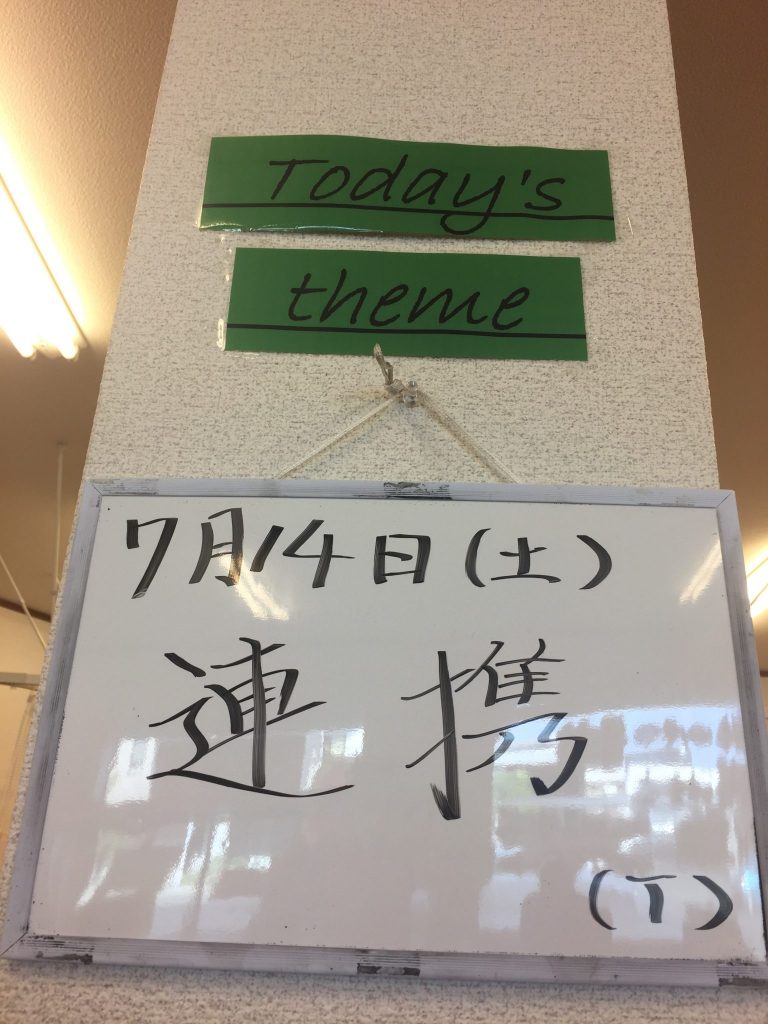 Today's
theme
7月14日(土)
連携
(T)